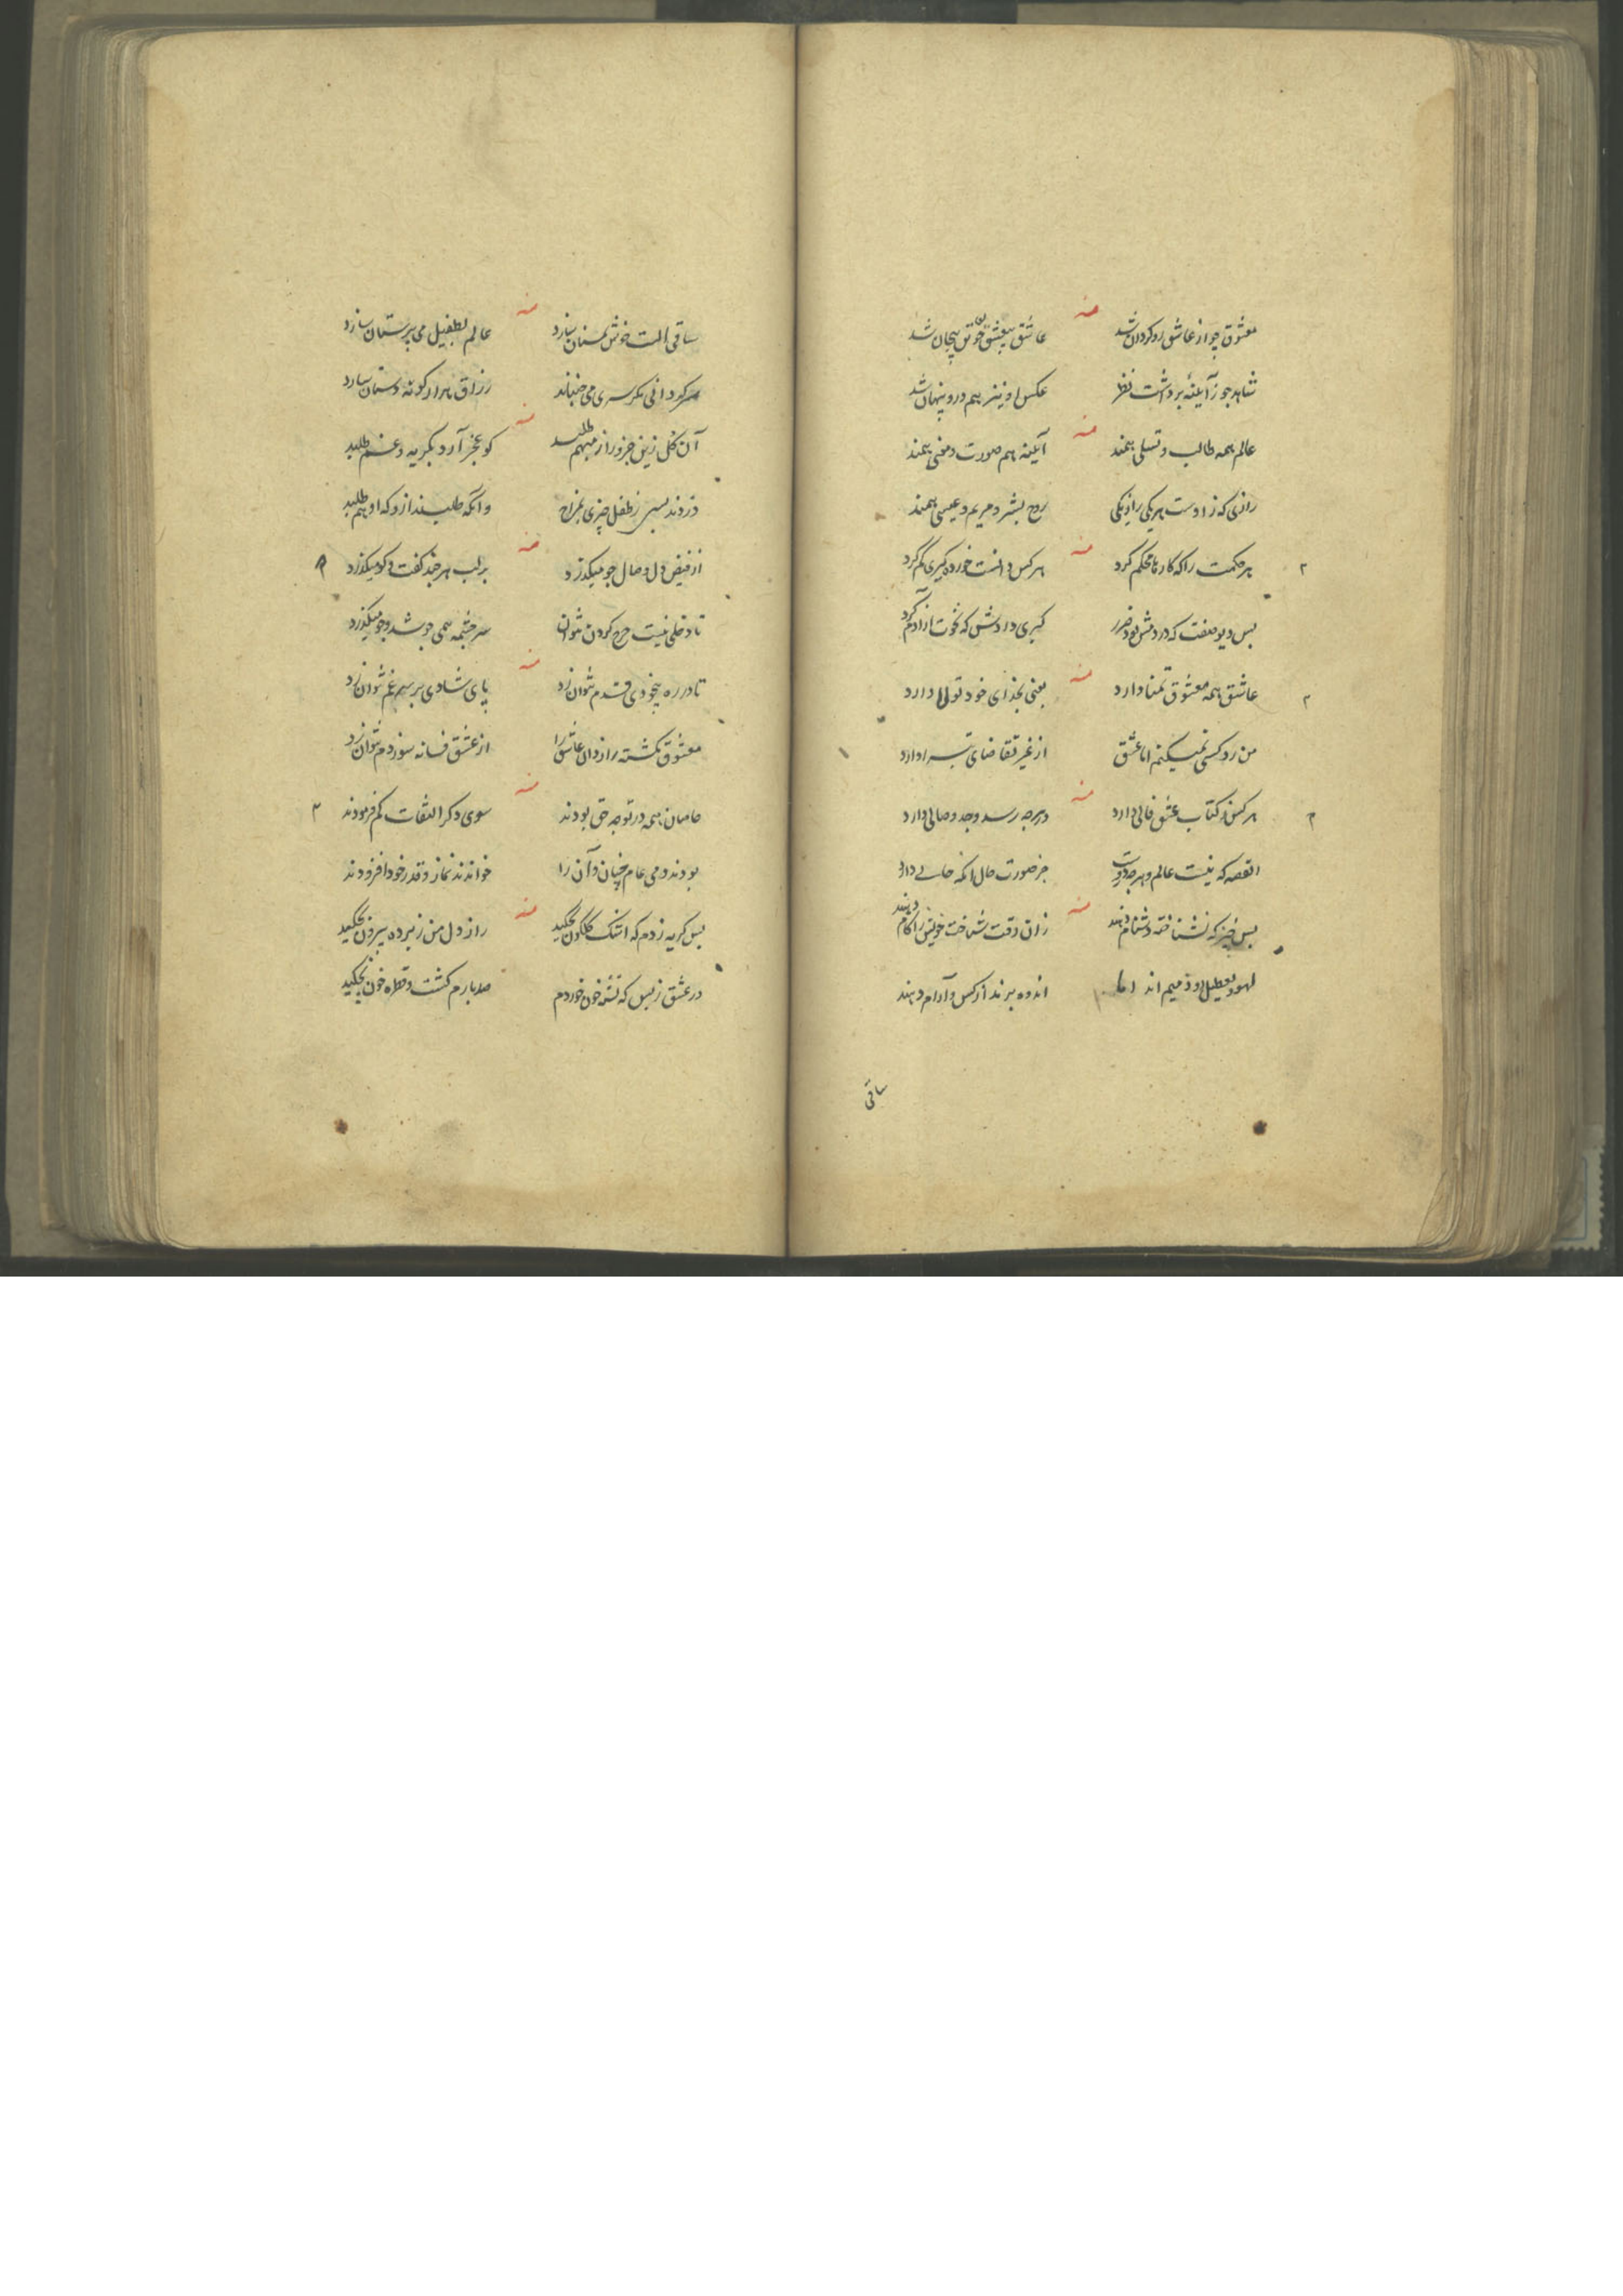 منه
معشوق چو از عاشق رو گردان شد عاشق بیعشق چون پیچان شد
شاهد چو ز آیینه برداشت نظر عکس او نیز هم درو پنهان شد
منه
عالم همه طالب و تسلی همند آیینه هم صورت و معنی همند
رازی که ز اوست هر یکی را زیکی روح بشر و مریم و عیسی همند
منه
هر حکمت را که کارها محکم کرد هر کس دانست خورده گیری کم کرد
بس دیو صفت که در دمش بود ضرر کبری دادش که نخوت از آدم کرد
منه
عاشق همه معشوق تمنا دارد یعنی بخدای خود تولا دارد
من رد کسی نمیکنم اما عشق از غیر تقاضای تبرا دارد
منه
هر کس ز کتاب عشق فالی دارد در هرچه رسد وجد و حالی دارد
القصه که نیست عالم و هرچه دروست جز صورت حال آنکه حالی دارد
منه
بس چیز که نشناخته دشنام دهند زان وقت شناخت خویش را کام دهند
لهو و تعطیل ذمیم اند اما اندوه برند از کس و آرام دهند
ساقی
منه
ساقی الست خوش مستان سازد عالم بطفیل می پرستان سازد
می جنباند رزاق هزار گونه دستان سازد
منه
آن کل زین جزو راز مبهم طلبد کو عجز آرد بگریه و غم طلبد
دزدند بسی ز طفل چیزی بمزاح وآنگه طلبند ازو که او هم طلبد
منه
از فیض دل وصال جو میگذرد بر لب هر چند گفت و گو میگذرد
تا دخلی نیست خرج کردن نتوان سرچشمه همی جوشد و جو میگذرد
منه
تا در ره بیخودی قدم نتوان زد پای شادی بر سر غم نتوان زد
معشوق نگشته رازدان عاشق را از عشق فسانه سوز دم نتوان زد
منه
خاصان همه در توجه حق بودند سوی دگر التفات کم فرمودند
بودند و می عام چنان و آن را خواندند نماز و قدر خود افزودند
منه
بس گریه زدم که اشک گلگون نچکید راز دل من ز پرده بیرون نچکید
در عشق ز بس که تشنه خون خوردم صد بارم کشت و قطره خون نچکید